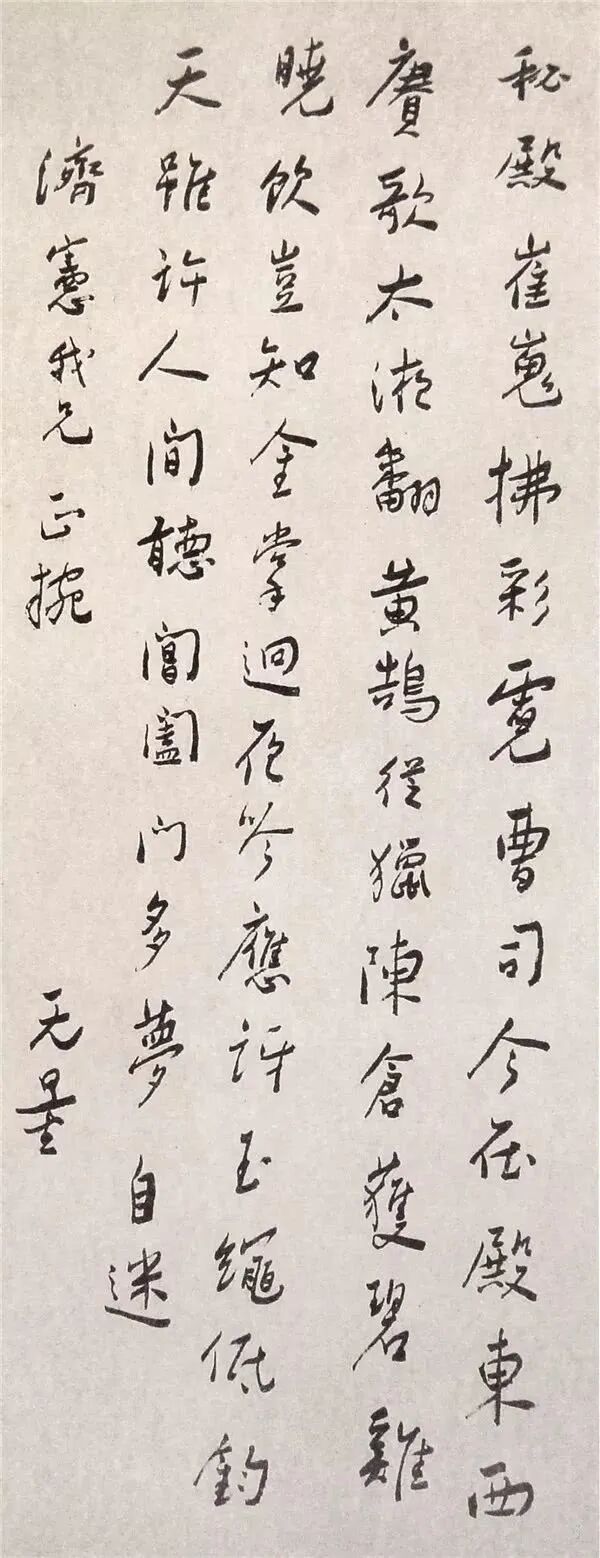 秘殿崔嵬拂彩霓曹司今在殿東西
賡歌太液翻黄鵠從獵陳倉獲碧雞
曉飲豈知金掌迥夜吟應訝玉繩低鈞
天雖許人間聽閶闔門多夢自迷
濟憲我兄正捥
无量